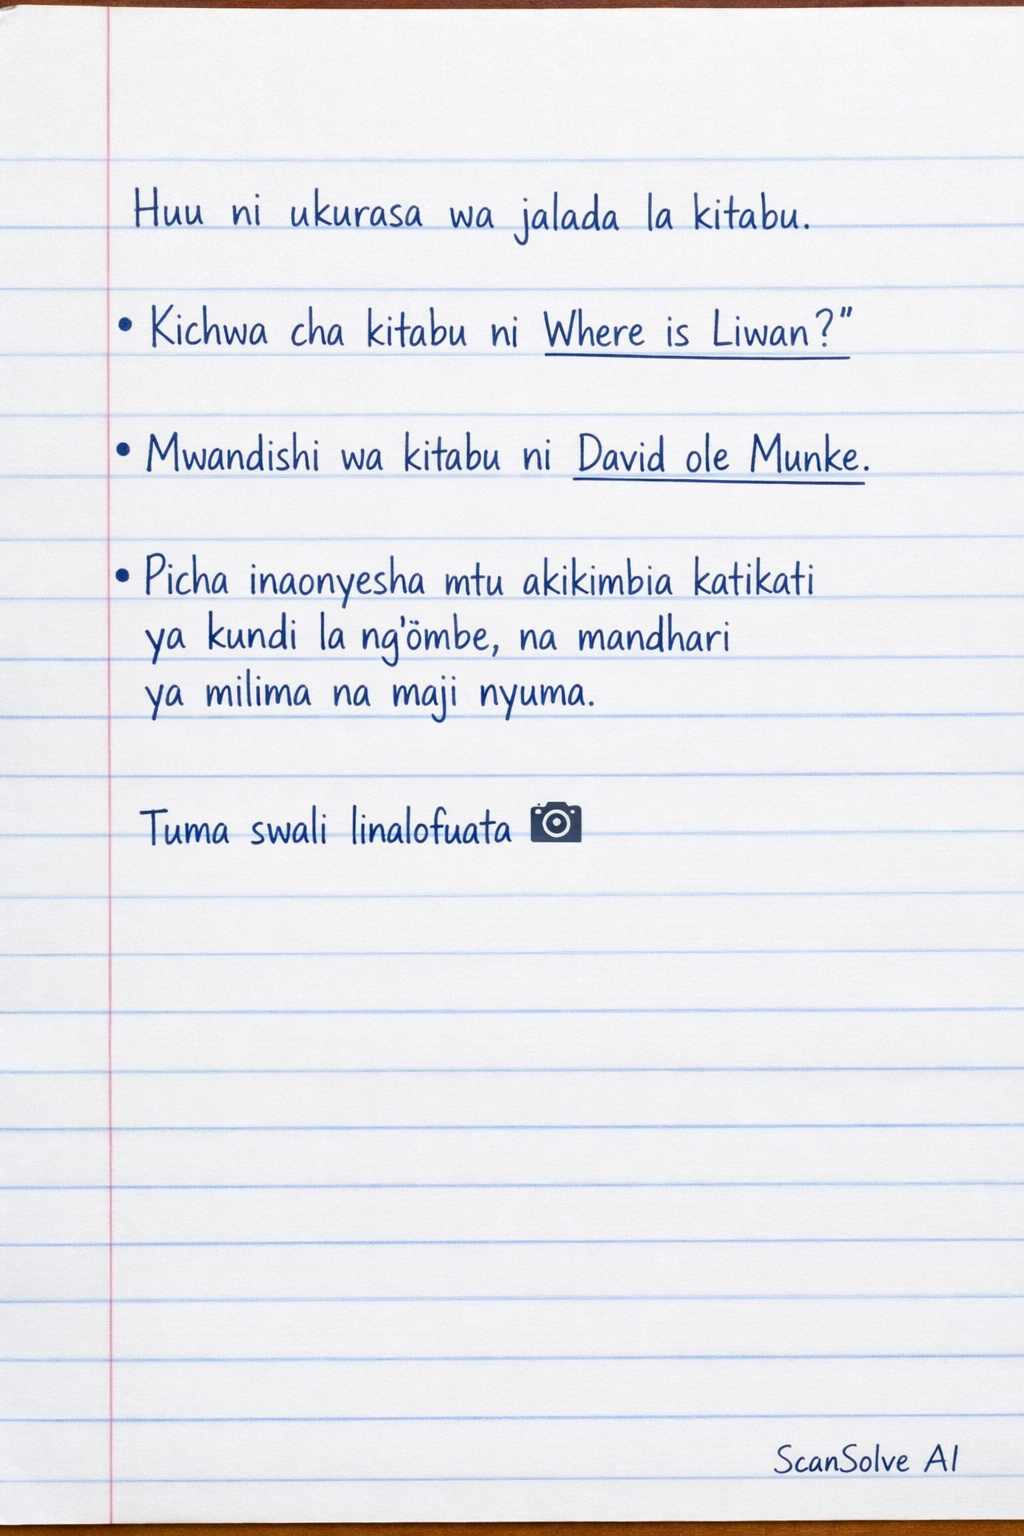 Huu ni ukurasa wa jalada la kitabu.
• Kichwa cha kitabu ni Where is Liwan?"
• Mwandishi wa kitabu ni David ole Munke.
• Picha inaonyesha mtu akikimbia katikati
ya kundi la ng'ömbe, na mandhari
ya milima na maji nyuma.
Tuma swali linalofuata 📷
ScanSolve AI